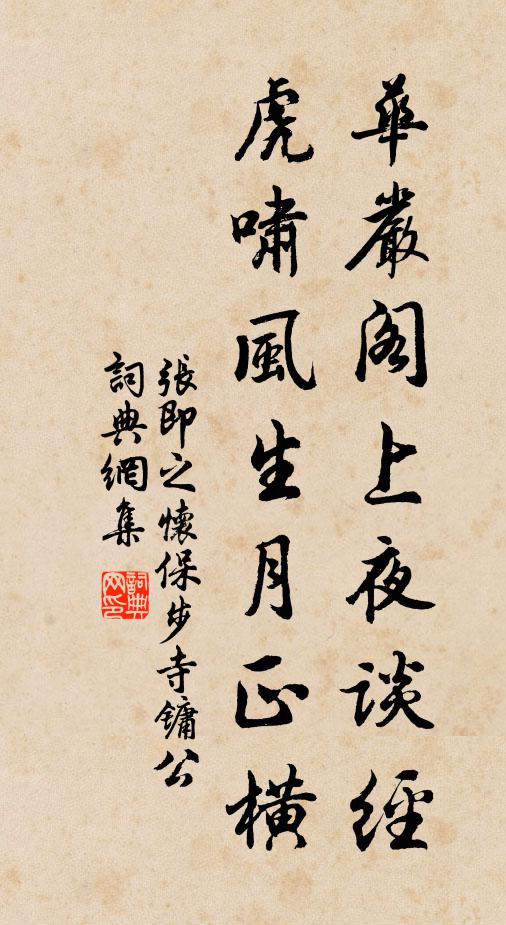 華嚴閣上夜談經
虎嘯風生月正橫
張即之懷保步寺鏞公
詞典網集
詞典网印